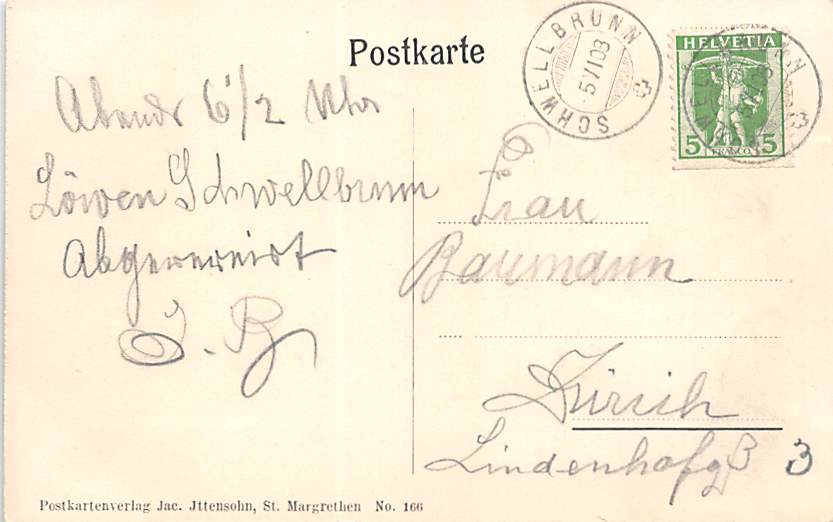 Postkarte
SCHWELLBRUNN
5 VI 08
HELVETIA
5 FRANCO 5
Abends 6 1/2 Uhr
Löwen Schwellbrunn
J. B.
Frau
Baumann
Zürich
Lindenhofg 3
Postkartenverlag Jac. Jttensohn, St. Margrethen No. 166